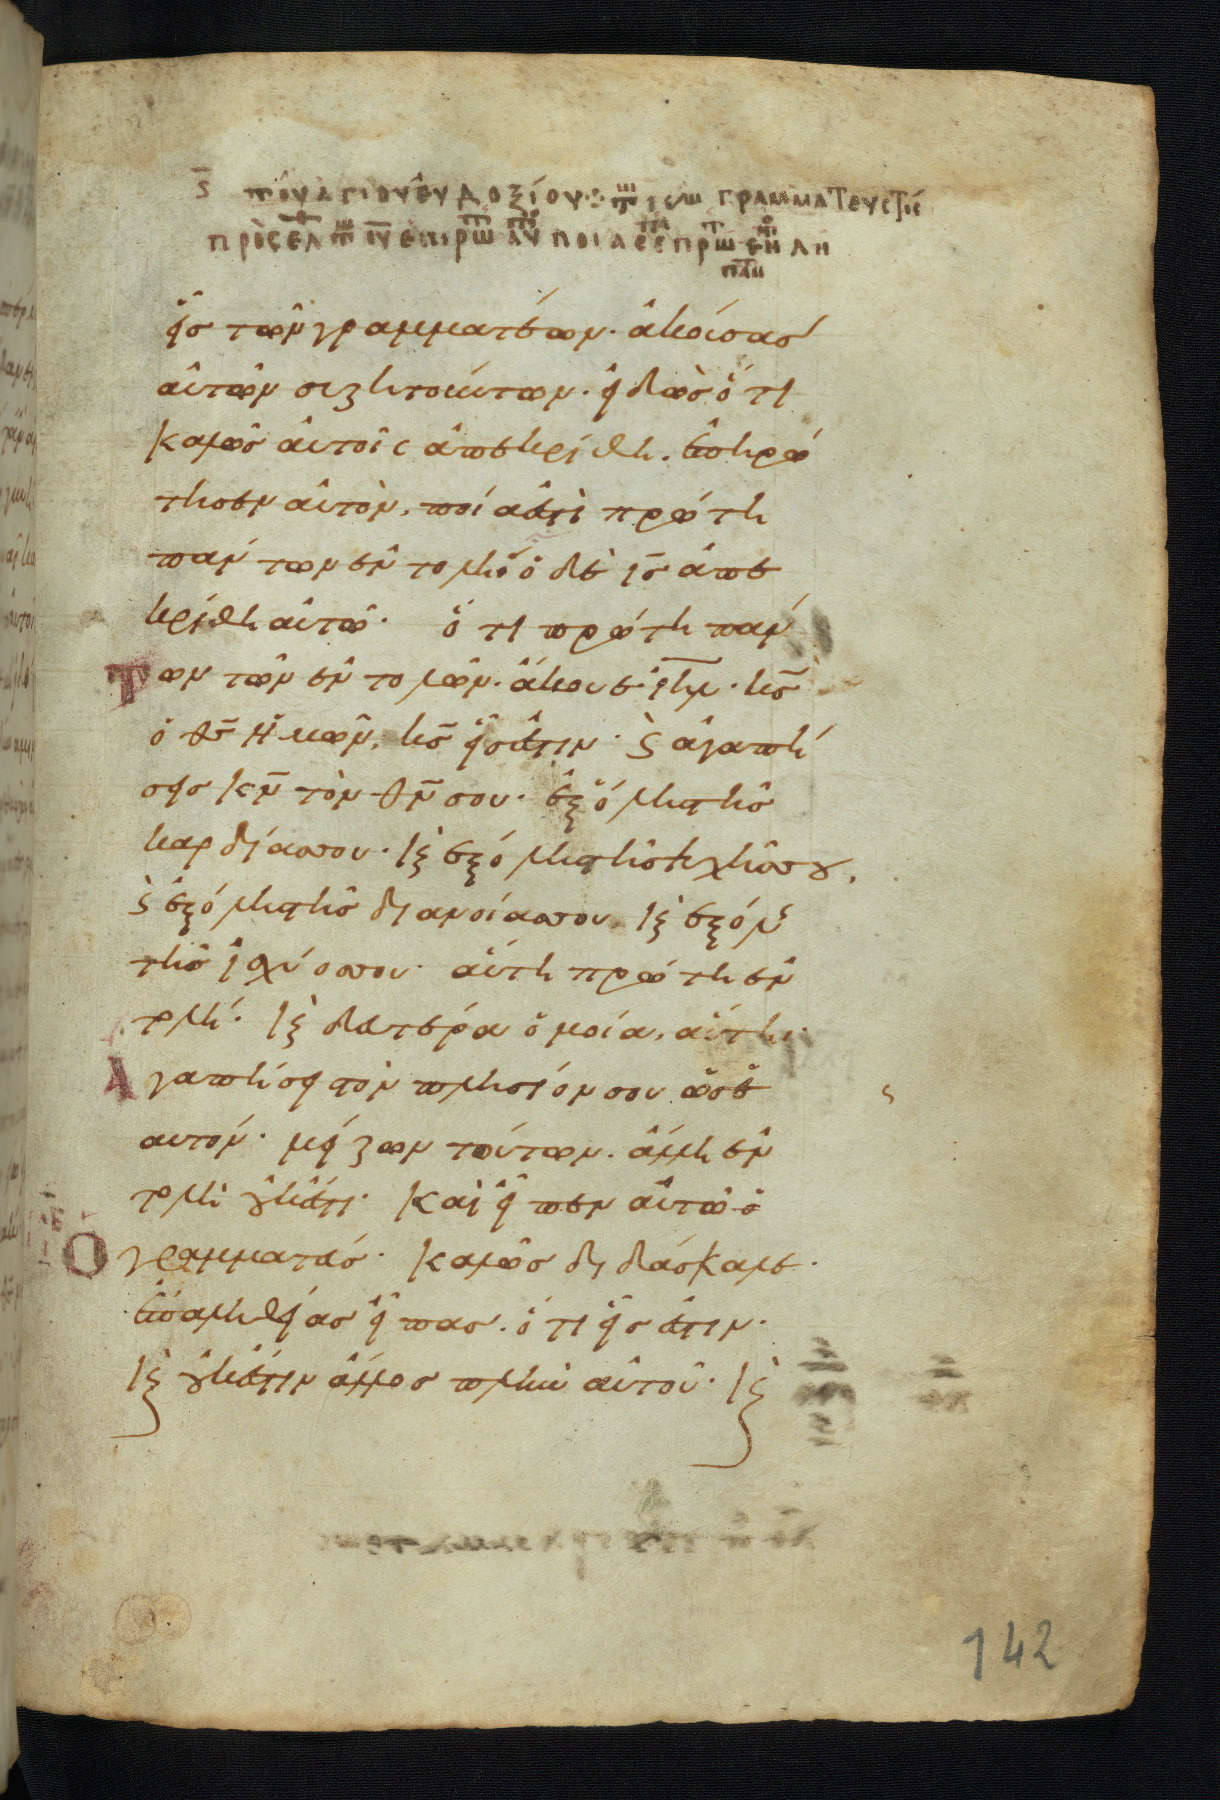 ς̄ τοῦ ἁγίου εὐδοξίου τω καιρω γραμματευς τις
προσελ τω ιυ επιρω αυ ποια εσ πρω εν λη
παν
εἷς τῶν γραμματέων· ἀκούσας
αὐτῶν συζητούντων· εἰδὼς ὅτι
καλῶς αὐτοῖς ἀπεκρίθη. ἐπηρώ
τησεν αὐτὸν, ποία ἐστὶ πρώτη
πάντων ἐντολή· ὁ δὲ ις̄ ἀπε
κρίθη αὐτῶ· ὅτι πρώτη πάν
των τῶν ἐντολῶν· ἄκουε ιη̄λ· κς̄
ὁ θς̄ ἡμῶν, κς̄ εἷς ἐστιν· ϗ ἀγαπή
σεις κν̄ τὸν θν̄ σου· ἐξ ὅλης τῆς
καρδίας σου· κ̀ ἐξ ὅλης τῆς ψυχῆς σου,
ϗ ἐξ ὅλης τῆς διανοίας σου, κ̀ ἐξ ὅλ
τῆς ἰσχύος σου· αὕτη πρώτη ἐν
τολή· κ̀ δευτέρα ὁμοία, αὕτη·
Ἀγαπήσεις τὸν πλησίον σου ὡς ἑ
αυτόν· μείζων τούτων· ἄλλη ἐν
τολὴ οὐκ ἔστι· Καὶ εἶπεν αὐτῶ ὁ
Ὁ γραμματεύς· καλῶς διδάσκαλε·
ἐπ' ἀληθείας εἶπας. ὅτι εἷς ἐστιν·
κ̀ οὐκ ἔστιν ἄλλος πλὴν αὐτοῦ· κ̀
142